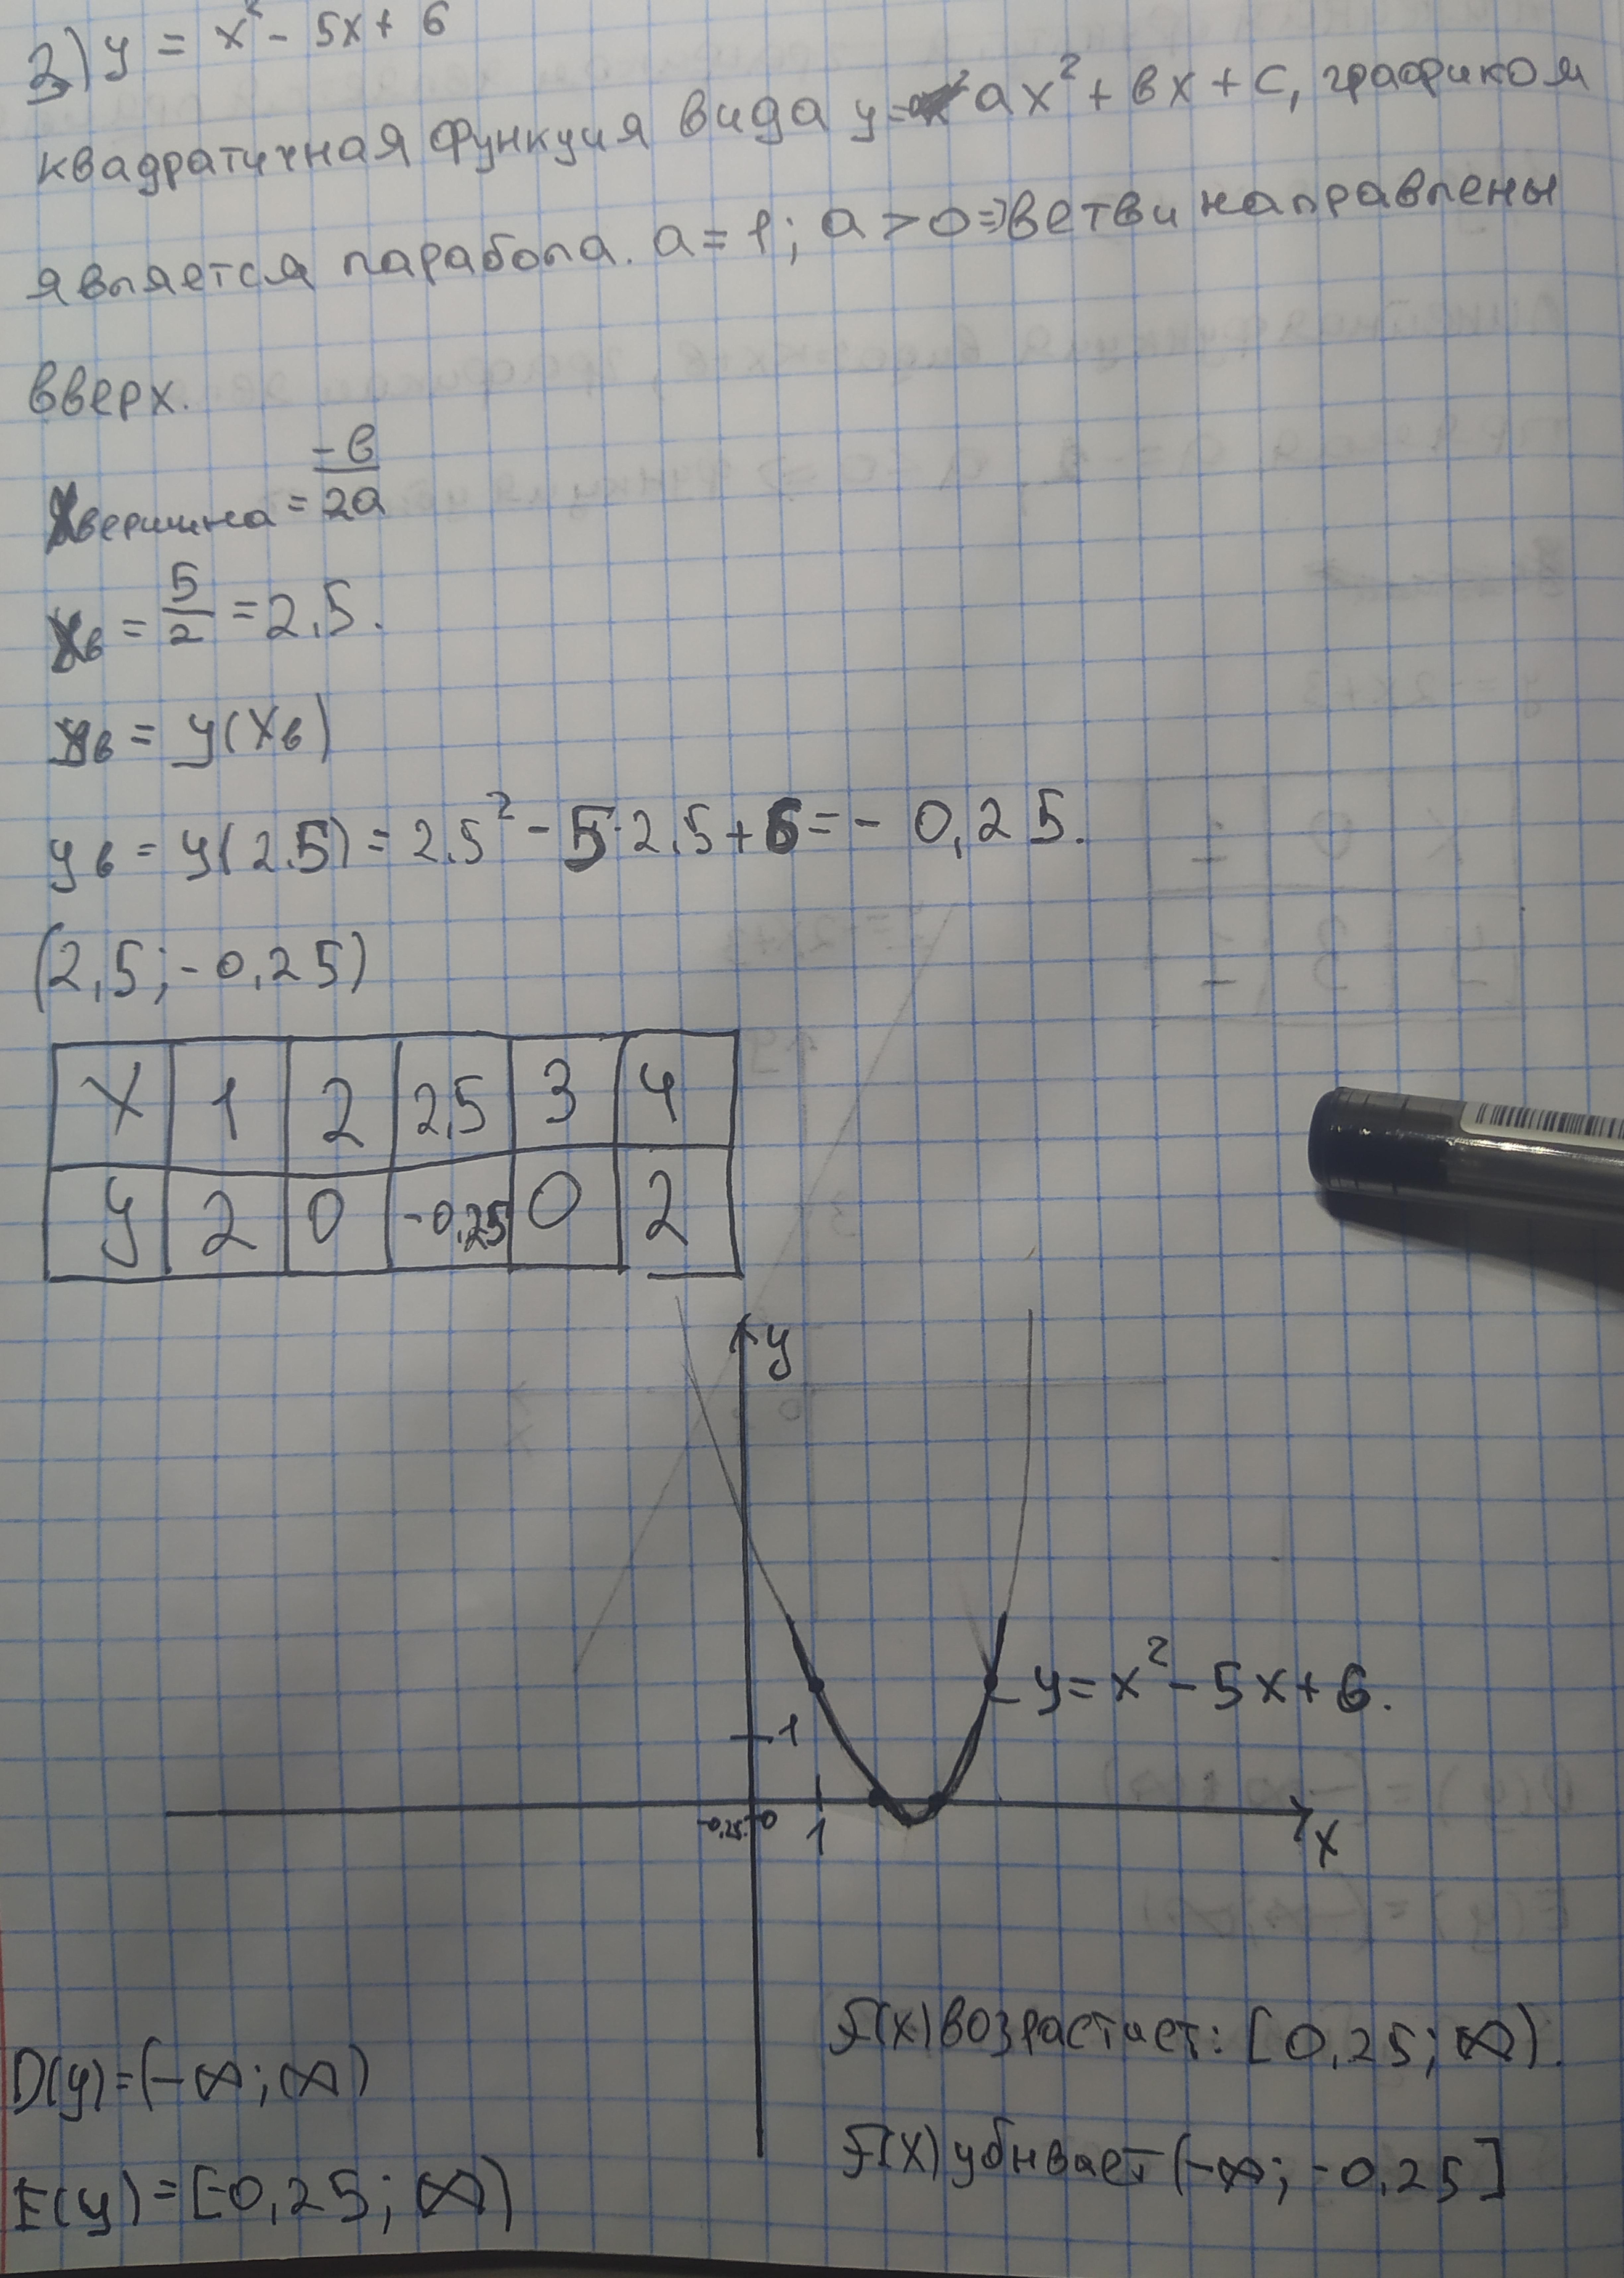 2) y = x² - 5x + 6
квадратичная функция вида y = ax² + bx + c, графиком
является парабола. a = 1; a > 0 => ветви направлены
вверх.
xвершина = -b/2a
xв = 5/2 = 2,5.
yв = y(xв)
yв = y(2,5) = 2,5² - 5·2,5 + 6 = - 0,25.
(2,5; -0,25)
x 1 2 2,5 3 4
y 2 0 -0,25 0 2
y
y = x² - 5x + 6.
1
-0,25 0 1 x
f(x) возрастает: [0,25; ∞).
D(y) = (-∞; ∞)
f(x) убывает (-∞; -0,25]
E(y) = [-0,25; ∞)